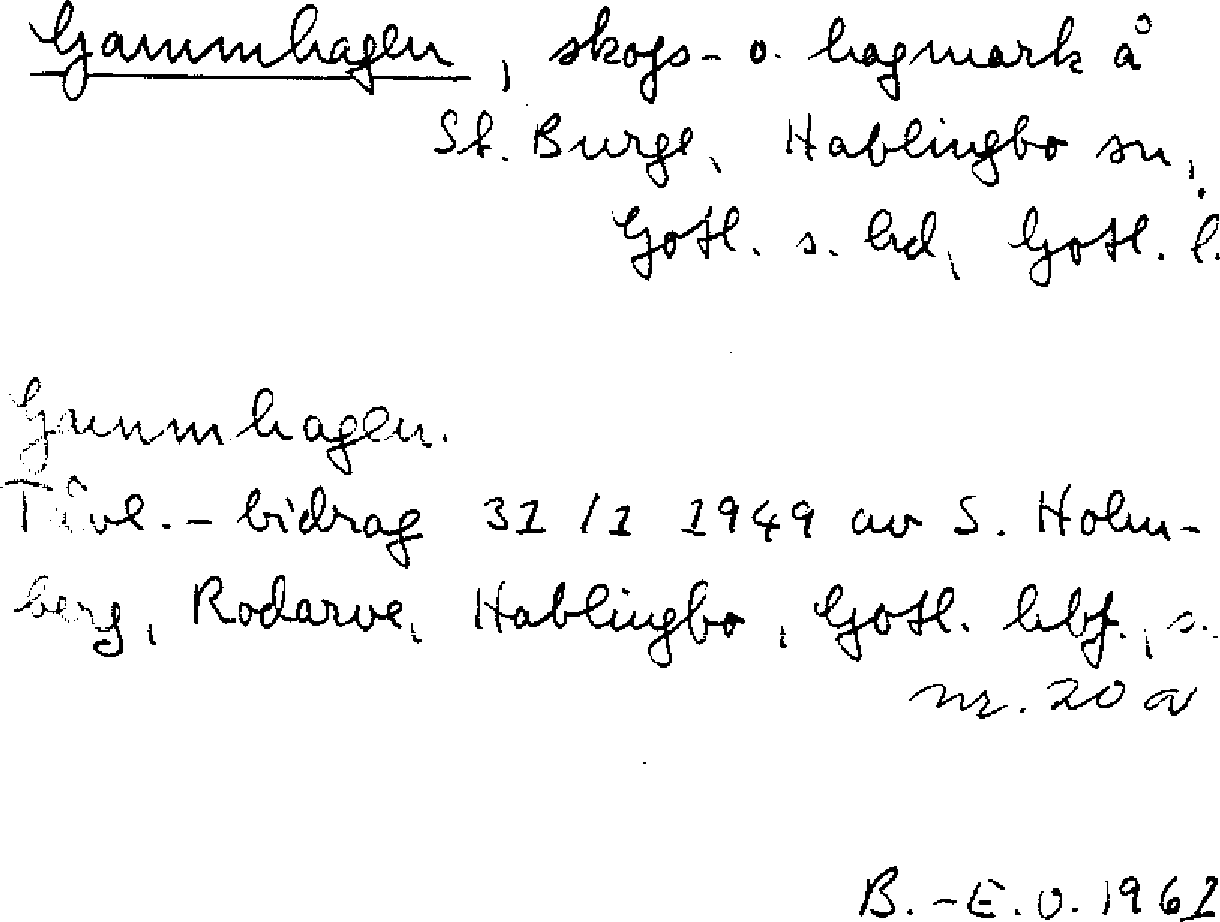 Gammhagen, skogs- o. hagmark å
St. Burge, Hablingbo sn,
Gotl. s. hd, Gotl. l.
Gammhagen.
Tävl.-bidrag 31/1 1949 av S. Holm-
berg, Rodarve, Hablingbo, Gotl. hbf., s.
nr. 20 a
B.-E. O. 1961